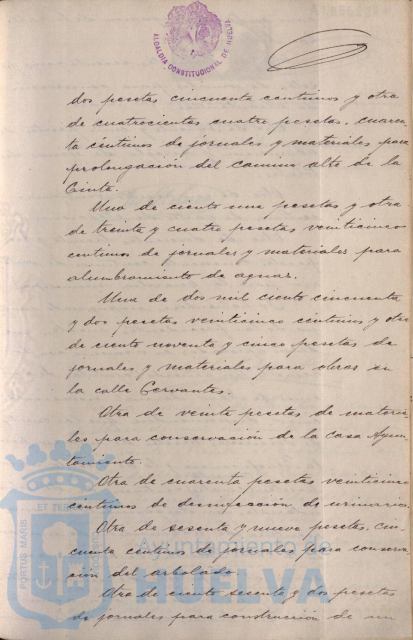 ALCALDIA CONSTITUCIONAL DE HUELVA
dos pesetas cincuenta centimos y otra
de cuatrocientas cuatro pesetas, cuaren-
ta céntimos de jornales y materiales para
prolongación del camino alto de la
Cinta.
Una de ciento una pesetas y otra
de treinta y cuatro pesetas veinticinco
centimos de jornales y materiales para
alumbramiento de aguas.
Una de dos mil ciento cincuenta
y dos pesetas veinticinco céntimos y otra
de ciento noventa y cinco pesetas de
jornales y materiales para obras en
la calle Cervantes.
Otra de veinte pesetas de materia-
les para conservación de la casa Ayun-
tamiento.
Otra de cuarenta pesetas veinticinco
céntimos de desinfección de urinarios.
Otra de sesenta y nueve pesetas, cin-
cuenta céntimos de jornales para conserva-
ción del arbolado.
Otra de ciento sesenta y dos pesetas
de jornales para construcción de un
PORTUS MARIS
Ayuntamiento de
HUELVA